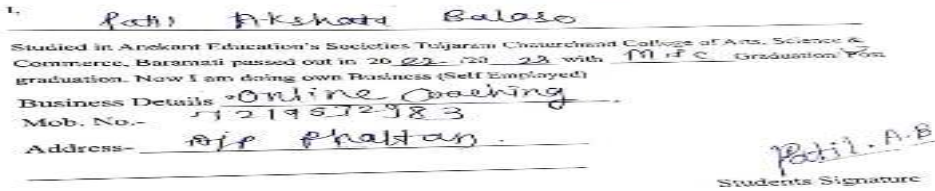 I, Patil Akshata Balaso
Studied in Anekant Education's Societies Tuljaram Chaturchand College of Arts, Science &
Commerce, Baramati passed out in 20 22- /20 23 with M.Sc Graduation/Post
graduation. Now I am doing own Business (Self Employed)
Business Details - Online Coaching.
Mob. No.- 7219572983
Address- A/P Phaltan.
Patil.A.B
Students Signature